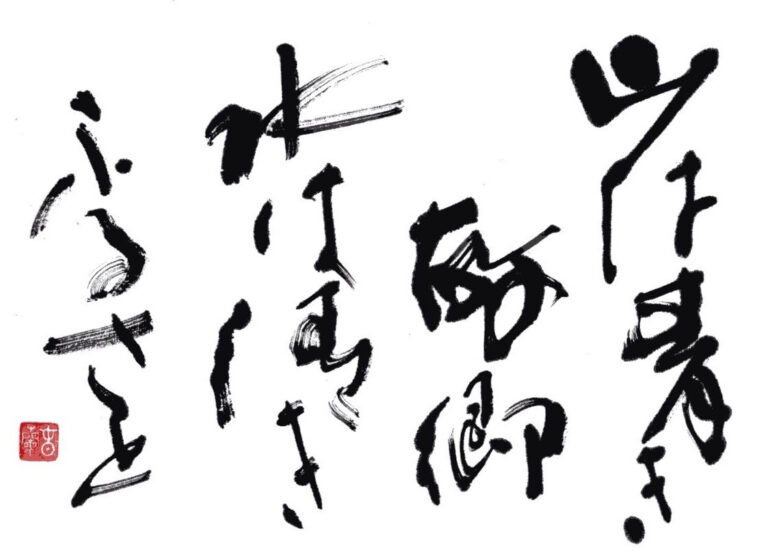 山は青き
故郷
水は清き
ふるさと